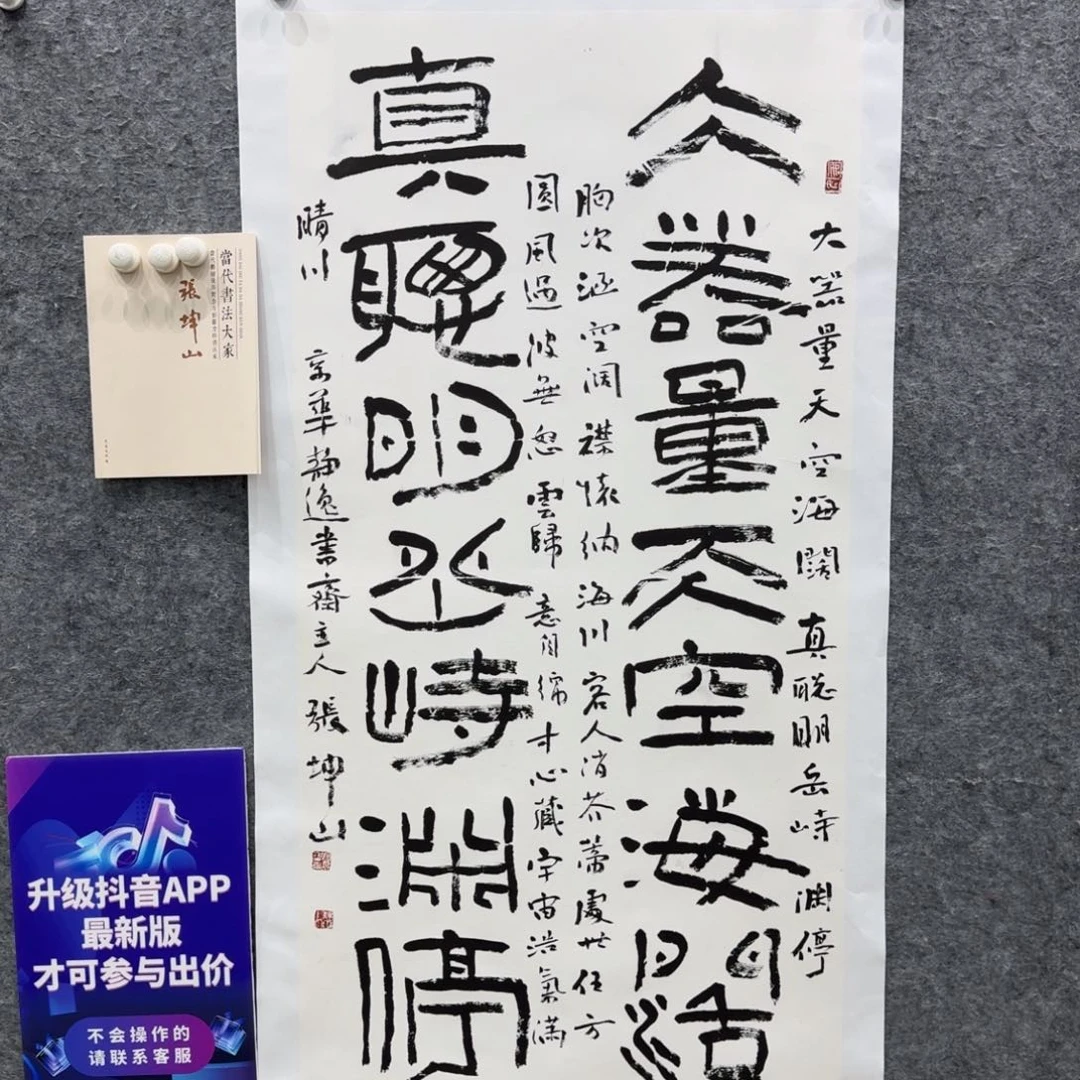 大器量天空海闊真聪明岳峙渊停
大器量天空海闊
胸次涵空阔襟懷纳海川容人消芥蒂處世任方
圓風過波無怒雲歸意自绵寸心藏宇宙浩氣满
真聰明岳峙淵停
晴川 京華静逸書齋主人張坤山
當代書法大家
張坤山
升级抖音APP
最新版
才可参与出价
不会操作的
请联系客服